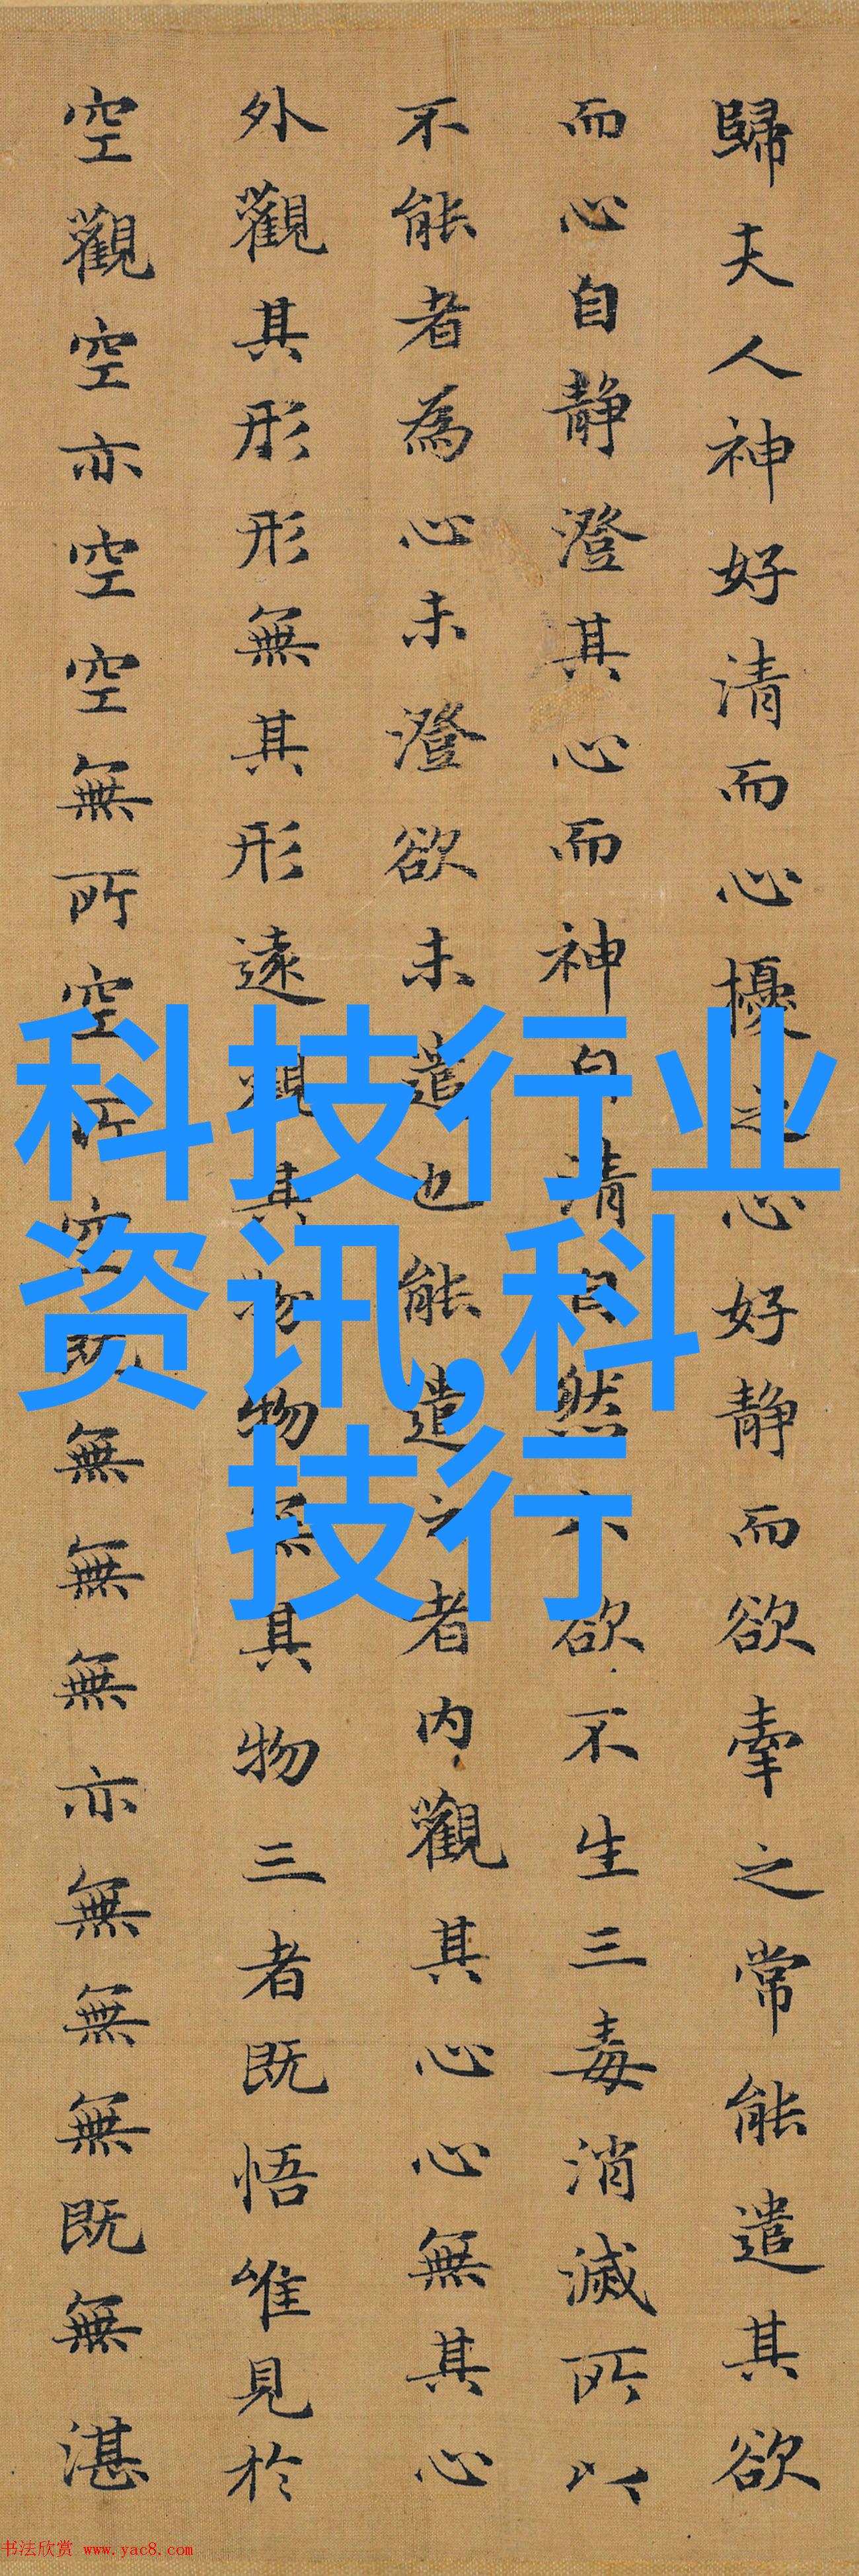 歸夫人神好清而心擾之心好静而欲牽之常能遣其欲
而心自静澄其心而神自清自然六欲不生三毒消滅所以
不能者為心未澄欲未遣也能遣之者内觀其心心無其心
外觀其形形無其形遠觀其物物無其物三者既悟唯見於
空觀空亦空空無所空所空既無無無亦無無無既無湛
科技行业
资讯,科
技行
书法欣赏 www.yac8.com